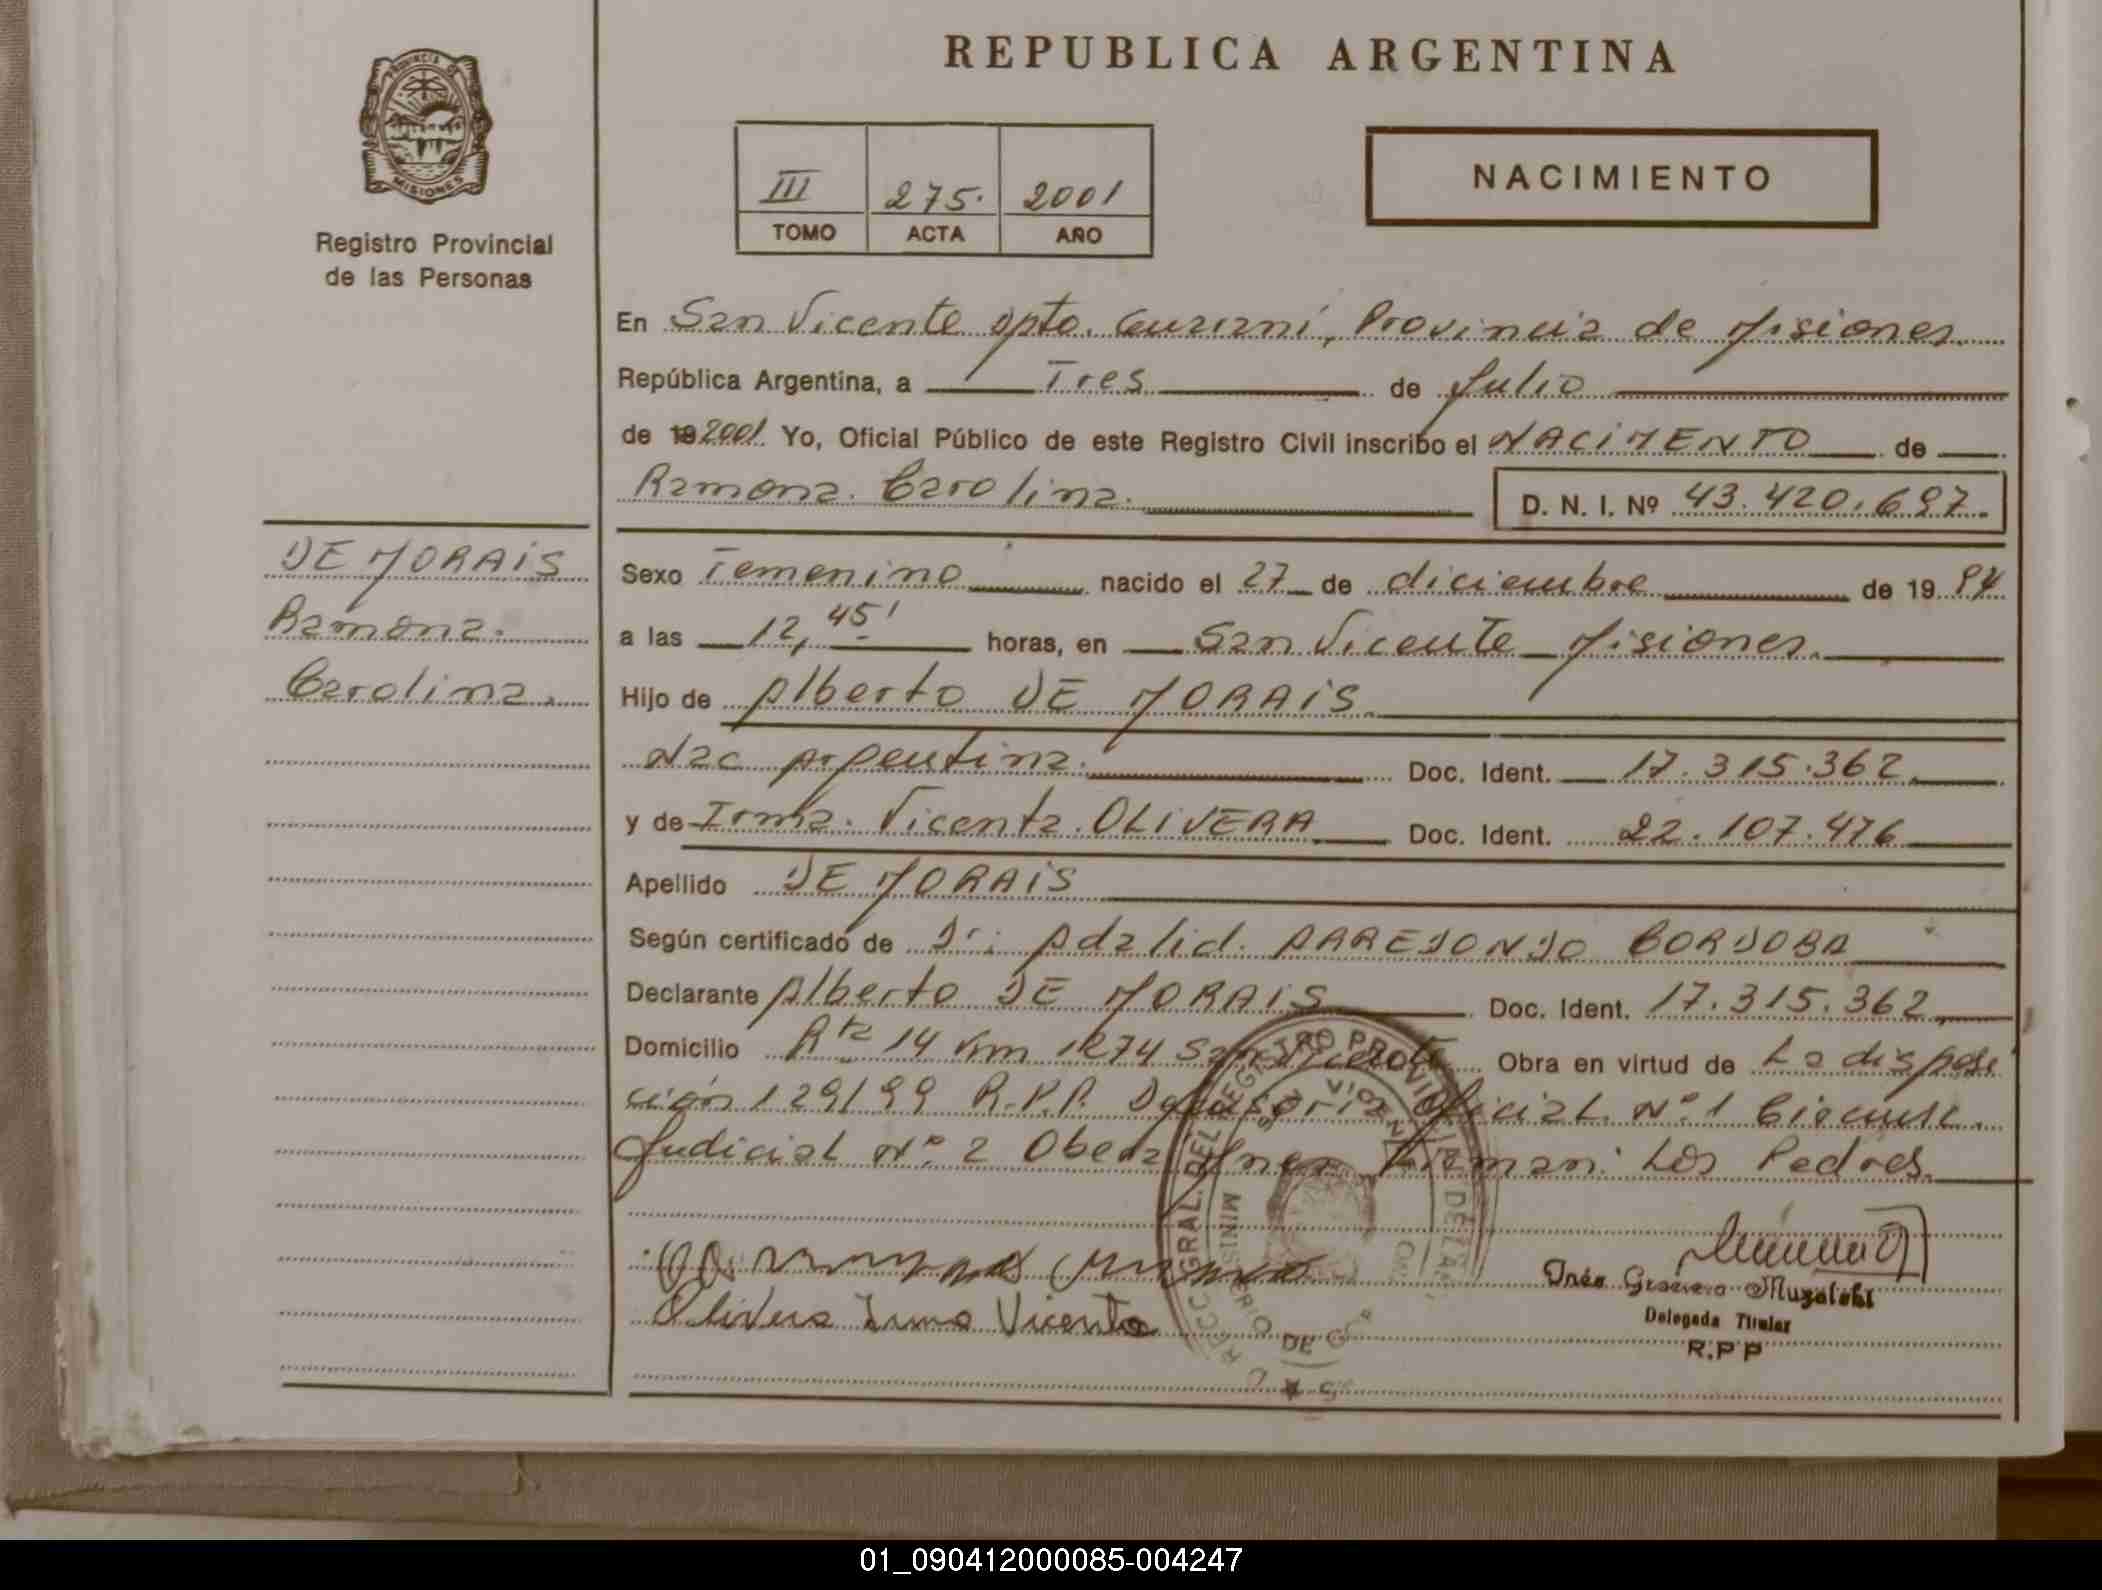 REPUBLICA ARGENTINA
PROVINCIA DE
MISIONES
Registro Provincial
de las Personas
III 275. 2001
TOMO ACTA AÑO
NACIMIENTO
En San Vicente Dpto. Guaraní, Provincia de Misiones.
República Argentina, a Tres de Julio
de 19 2001 Yo, Oficial Público de este Registro Civil inscribo el NACIMIENTO de
Ramona Carolina. D. N. I. Nº 43.420.697.
DE MORAIS
Ramona.
Carolina.
Sexo Femenino nacido el 27 de diciembre de 19 94
a las 12,45' horas, en San Vicente Misiones.
Hijo de Alberto DE MORAIS
Nac Argentina. Doc. Ident. 17.315.362
y de Irma Vicenta OLIVERA Doc. Ident. 22.107.476
Apellido DE MORAIS
Según certificado de Dr: Adalid PAREDONDO CORDOBA
Declarante Alberto DE MORAIS Doc. Ident. 17.315.362
Domicilio Rta 14 Km 1274 San Vicente Obra en virtud de La disposi
ción 129/99 R.P.P. Defensoría Oficial Nº 1 Circunsc.
Judicial Nº 2 Obera Los Padres.
Olivera Irma Vicenta
Delegada Titular
R.P.P
01_090412000085-004247